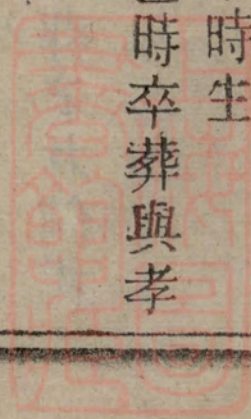 時生
時卒葬與孝